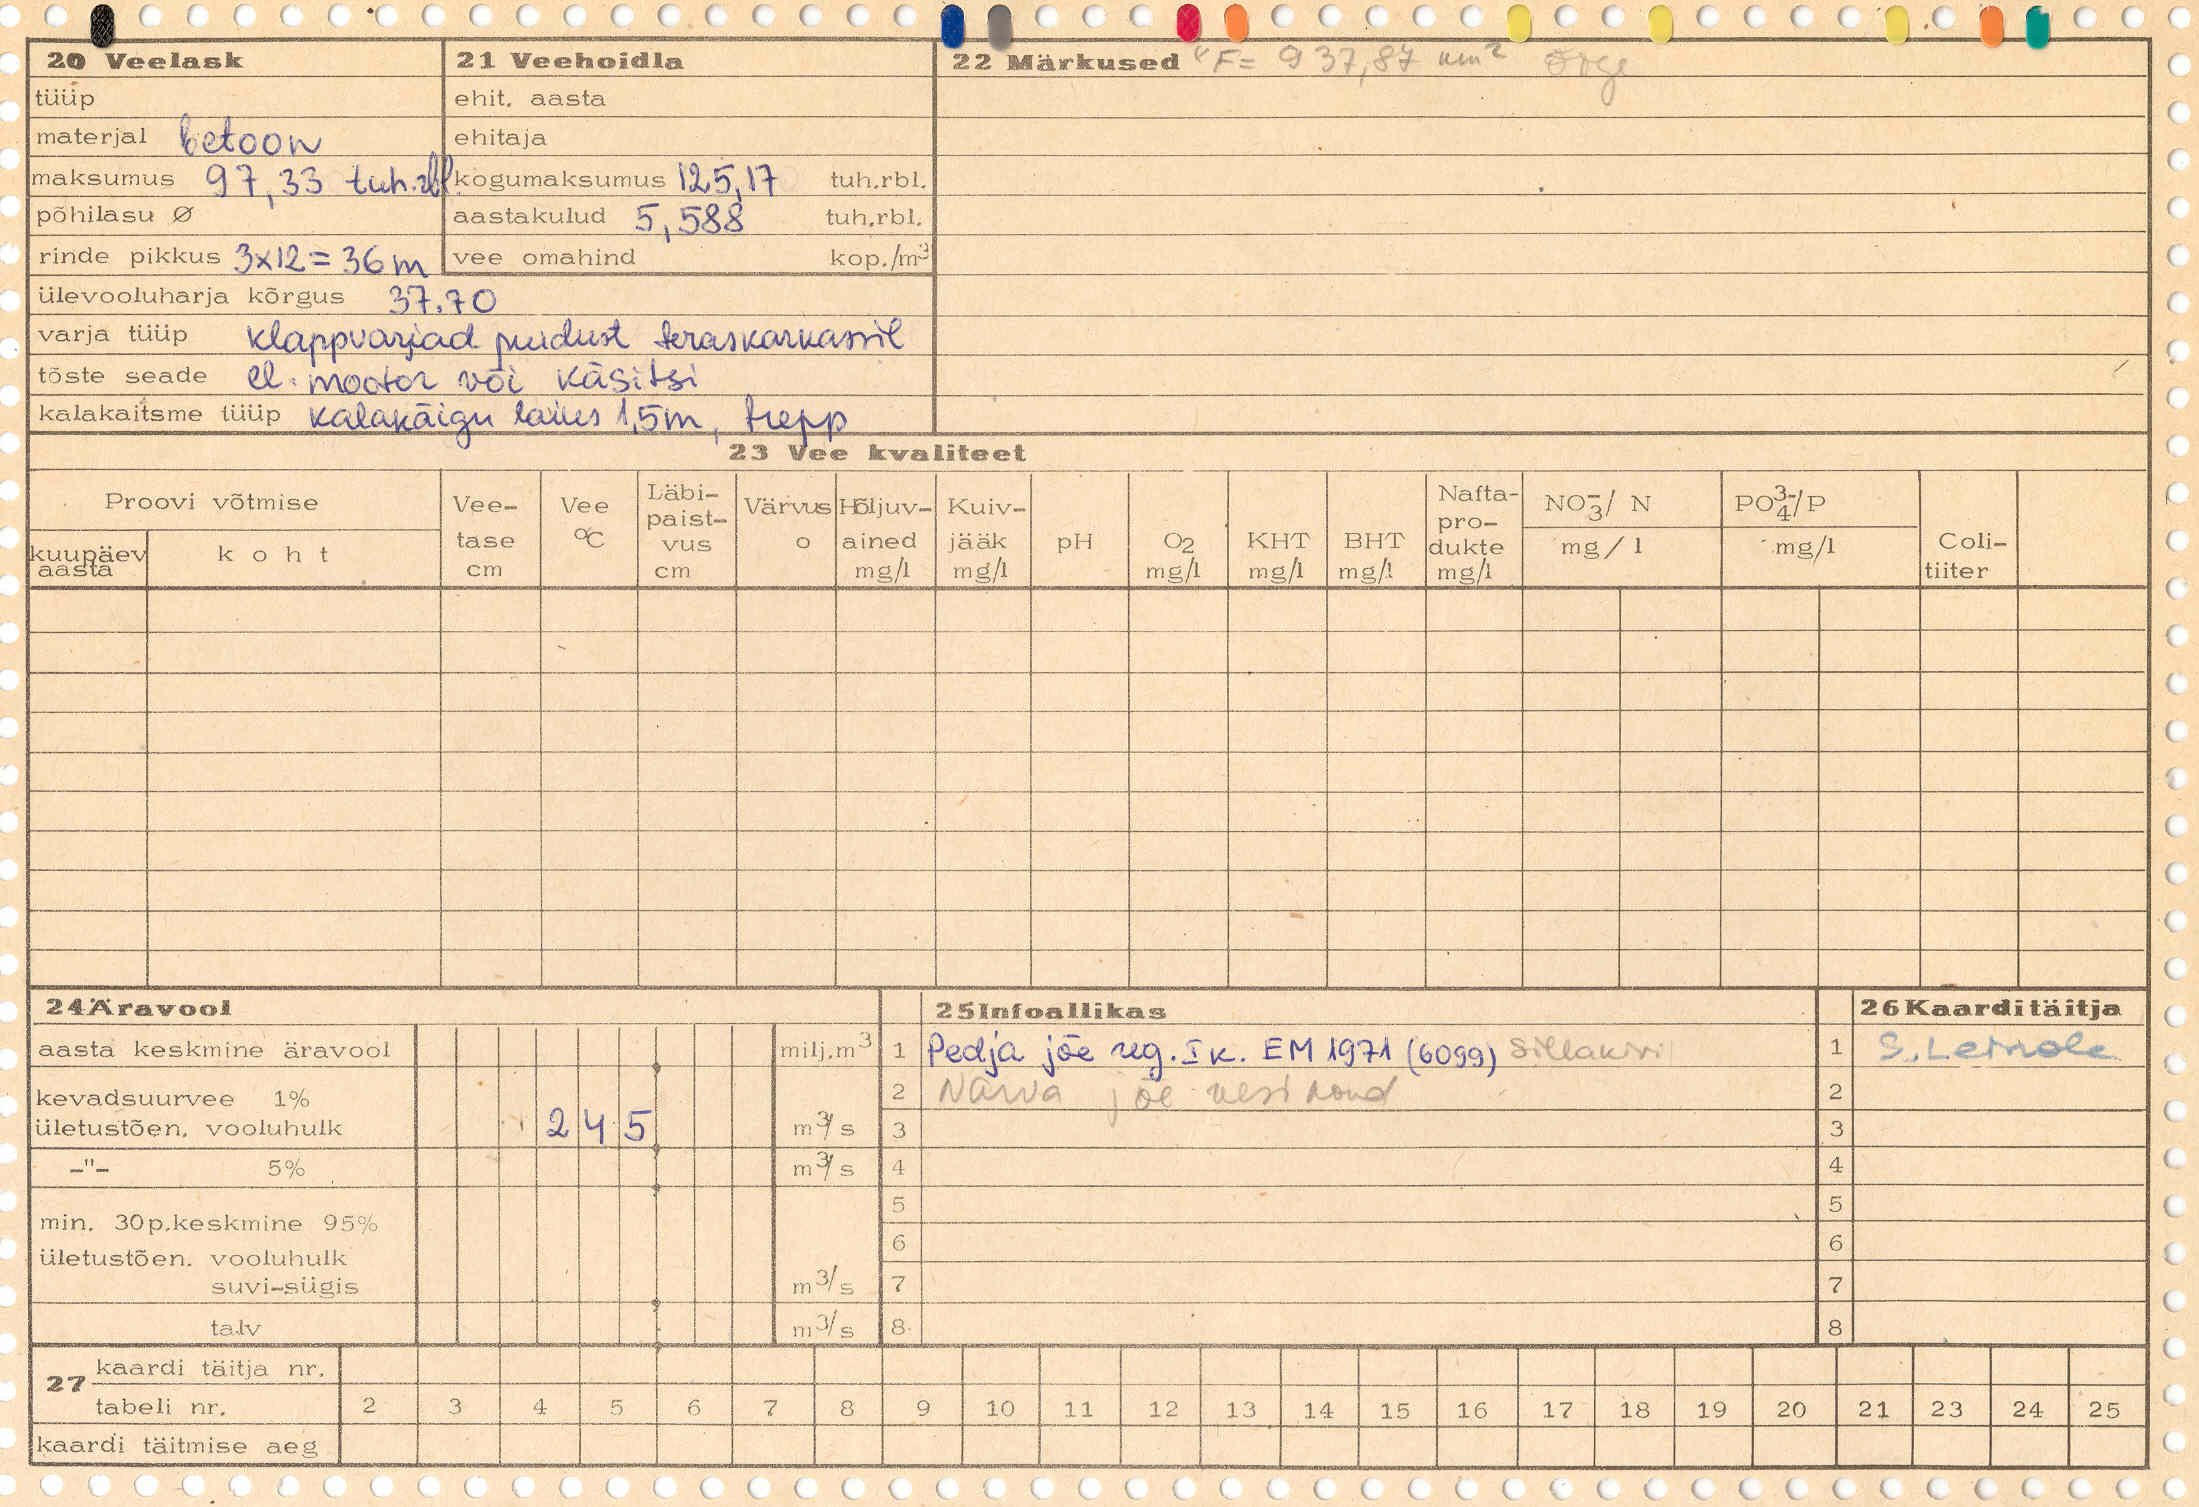 20 Veelask
tüüp
materjal betoon
maksumus 97,33 tuh.rbl.
põhilasu Ø
rinde pikkus 3x12=36m
ülevooluharja kõrgus 37.70
varja tüüp klappvarjad puidust teraskarkassil
tõste seade el. mootor või käsitsi
kalakaitsme tüüp kalakäigu laius 1,5m, trepp
21 Veehoidla
ehit. aasta
ehitaja
kogumaksumus 125,17 tuh.rbl.
aastakulud 5,588 tuh.rbl.
vee omahind kop./m³
22 Märkused F= 937,87 km² õige
23 Vee kvaliteet
Proovi võtmise
kuupäev
aasta
koht
Vee-
tase
cm
Vee
°C
Läbi-
paist-
vus
cm
Värvus
o
Hõljuv-
ained
mg/l
Kuiv-
jääk
mg/l
pH
O2
mg/l
KHT
mg/l
BHT
mg/l
Nafta-
pro-
dukte
mg/l
NO3-/ N
mg/l
PO4 3-/P
mg/l
Coli-
tiiter
24 Äravool
aasta keskmine äravool milj.m³
kevadsuurvee 1%
ületustõen. vooluhulk 245 m³/s
-"- 5% m³/s
min. 30p.keskmine 95%
ületustõen. vooluhulk
suvi-sügis m³/s
talv m³/s
25 Infoallikas
1 Pedja jõe reg. I k. EM 1971 (6099) Sillakivi
2 Narva jõe vesikond
3
4
5
6
7
8
26 Kaarditäitja
1
2
3
4
5
6
7
8
27 kaardi täitja nr.
tabeli nr. 2 3 4 5 6 7 8 9 10 11 12 13 14 15 16 17 18 19 20 21 23 24 25
kaardi täitmise aeg